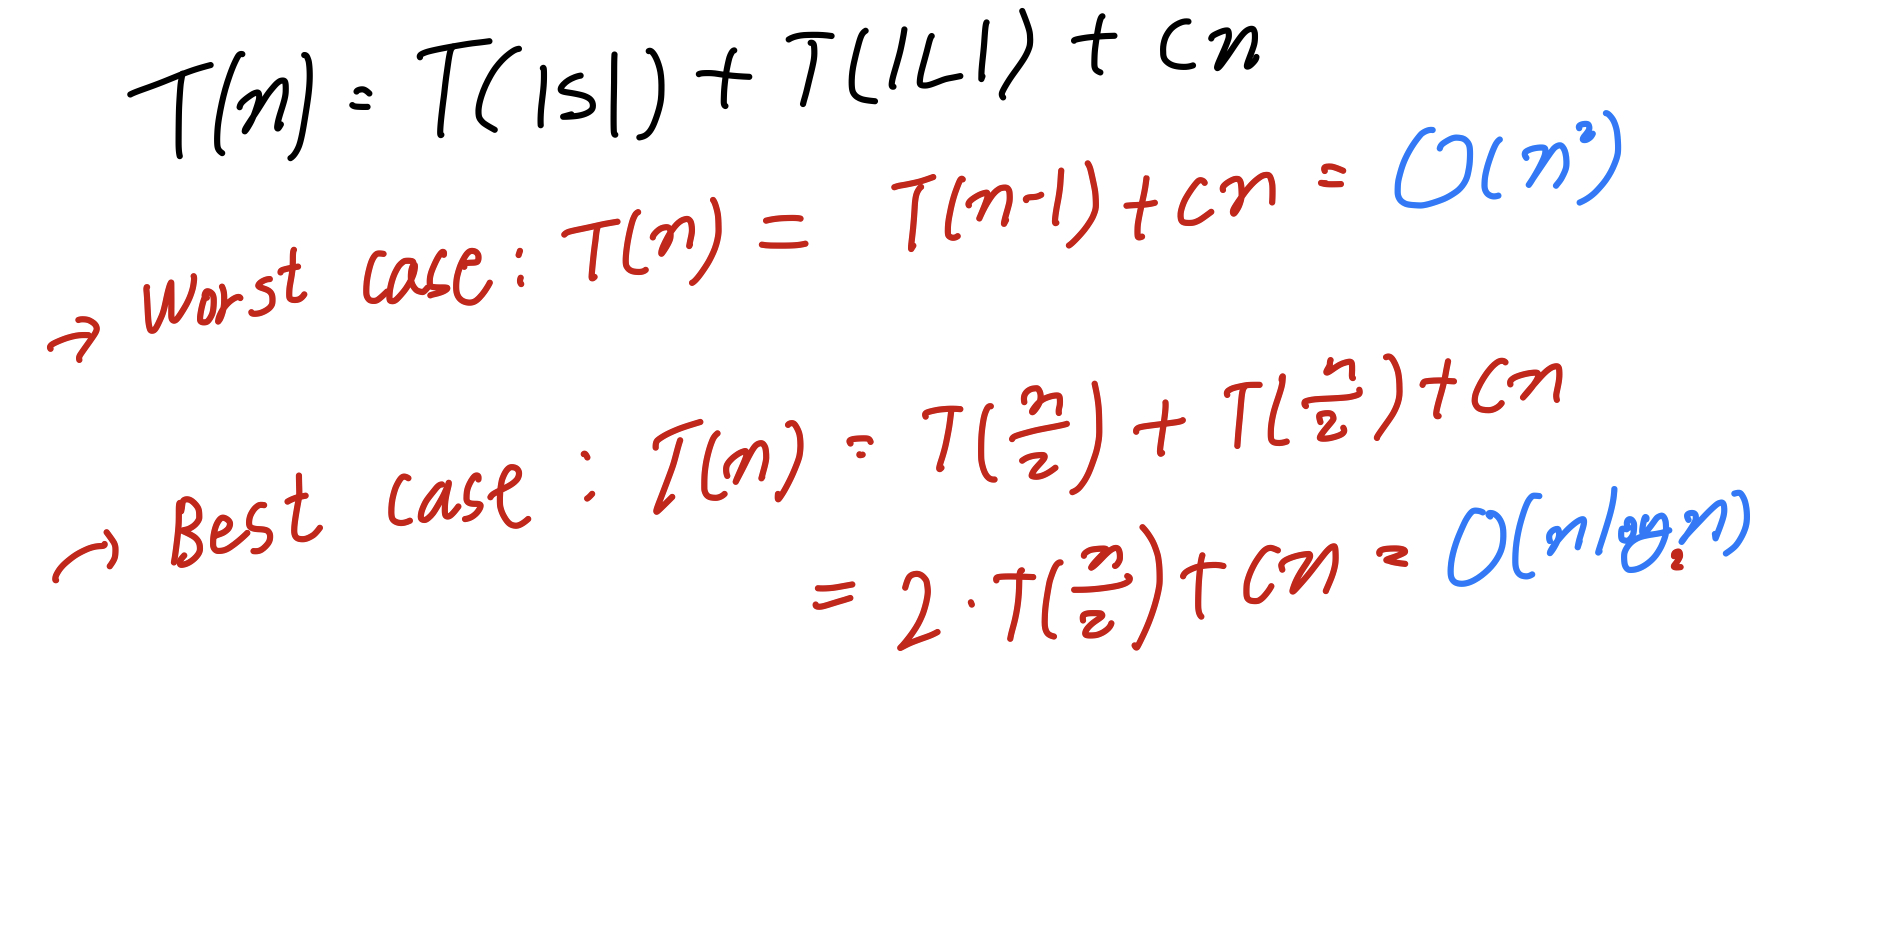 T(n) = T(|S|) + T(|L|) + cn
→ Worst case: T(n) = T(n-1) + cn = O(n²)
→ Best case: T(n) = T(n/2) + T(n/2) + cn
= 2 · T(n/2) + cn = O(n log₂ n)